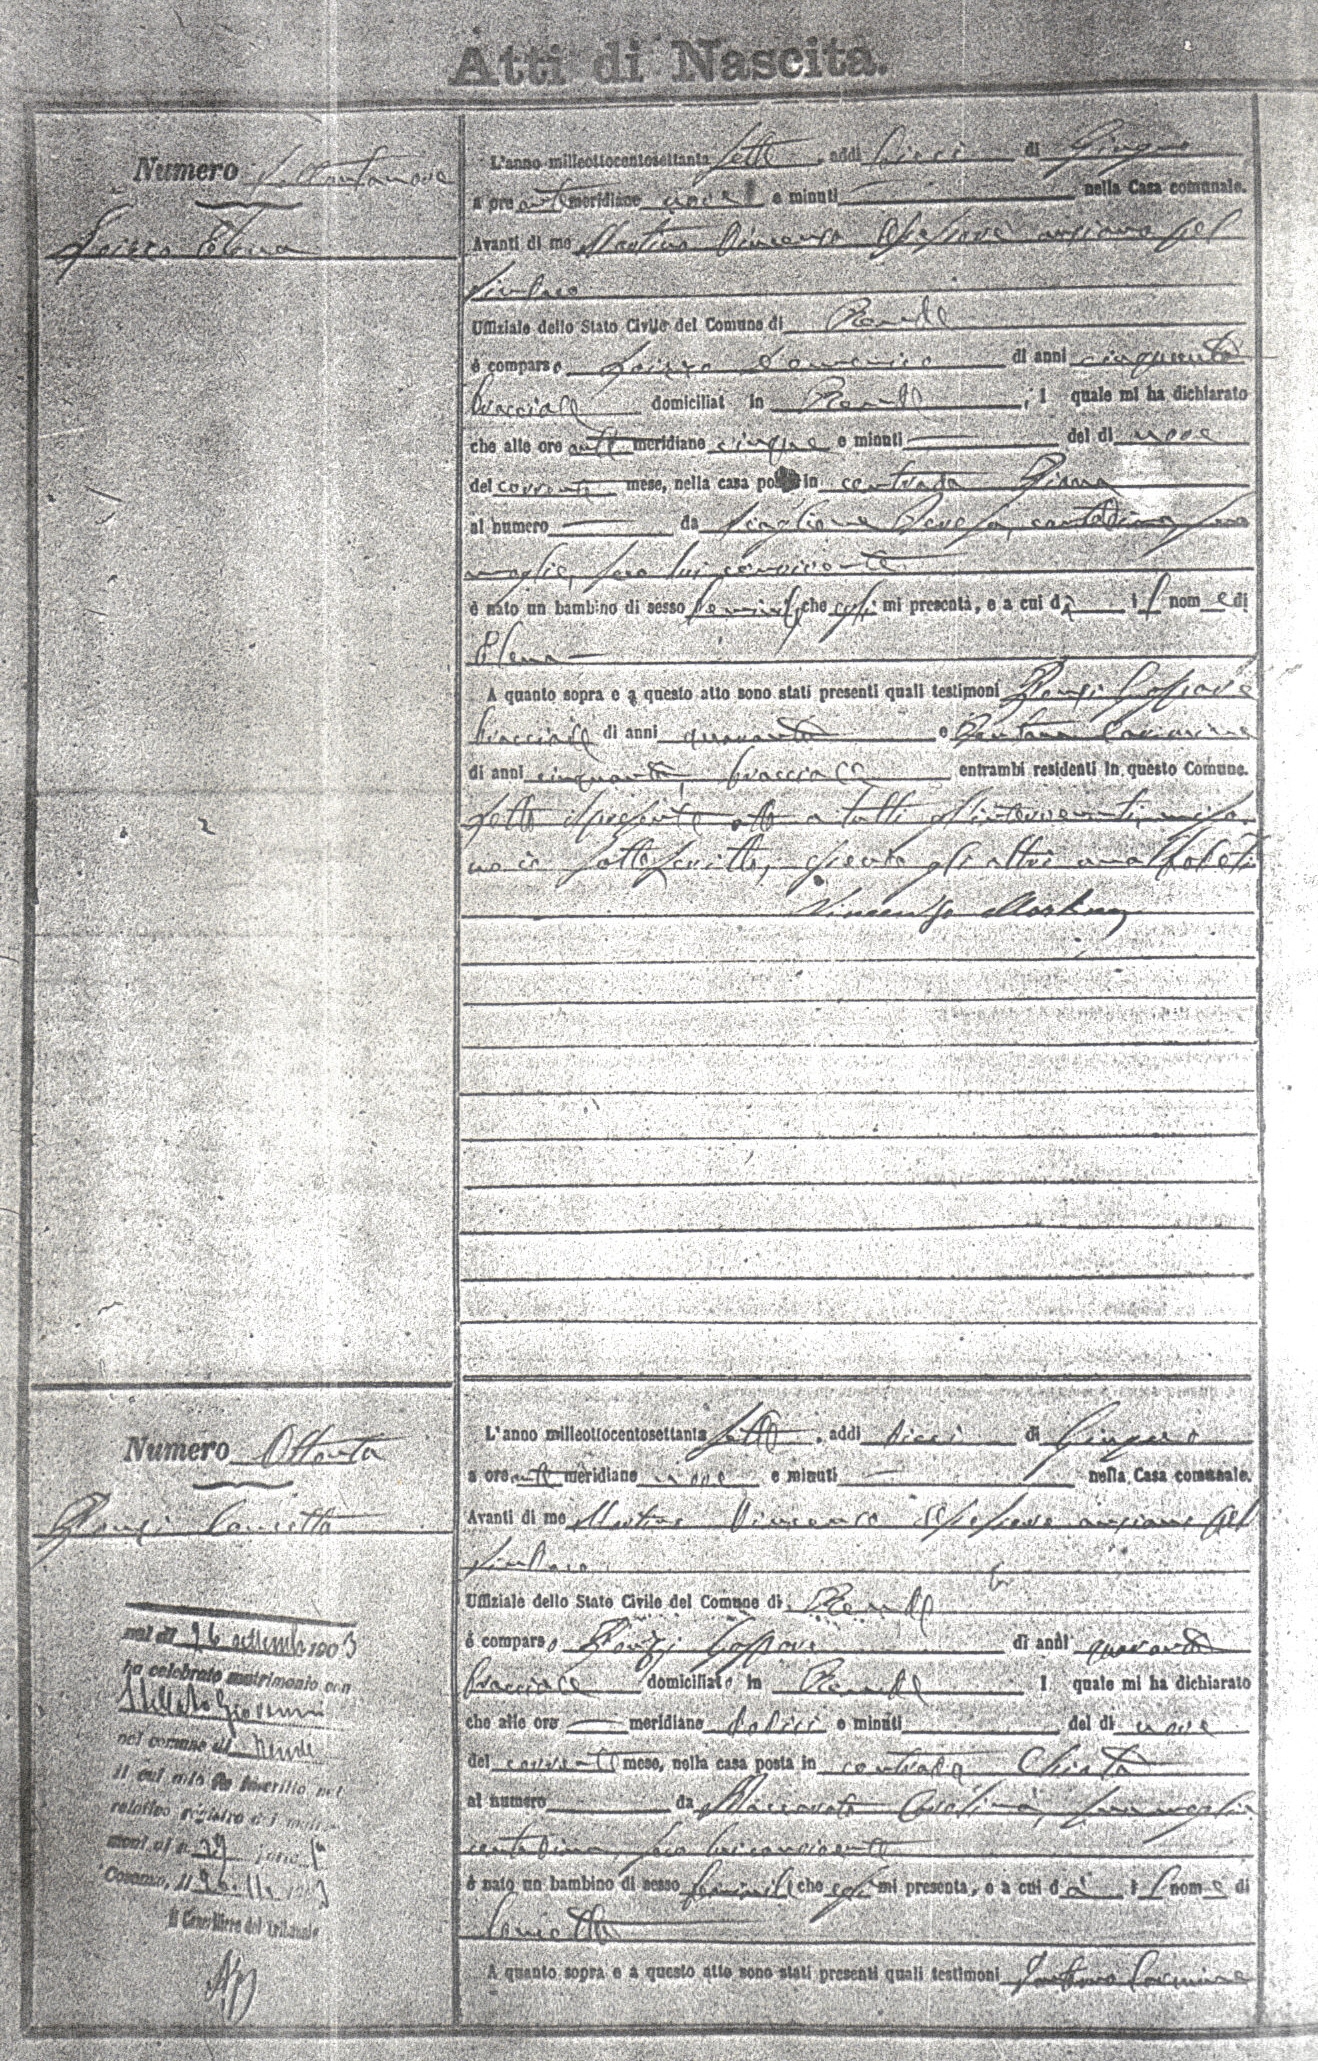 Atti di Nascita.
Numero Settantanove
Spizzo Elena
L'anno milleottocentosettanta sette, addì dieci di Giugno
a ore antemeridiane nove e minuti nella Casa comunale.
Avanti di me Martino Vincenzo Assessore anziano pel
Sindaco
Uffiziale dello Stato Civile del Comune di Rende
è comparso Domenico di anni cinquanta
bracciale domiciliat in Rende, l quale mi ha dichiarato
che alle ore antemeridiane cinque e minuti del dì nove
del corrente mese, nella casa posta in contrada
al numero da Scaglione Teresa, contadina, sua
moglie, seco lui convivente
è nato un bambino di sesso feminile che egli mi presenta, e a cui dà il nome di
Elena
A quanto sopra e a questo atto sono stati presenti quali testimoni Gaspare
bracciale di anni quaranta e Carmine
di anni cinquanta, bracciale entrambi residenti in questo Comune.
Letto il presente atto a tutti gl'intervenuti, mi so-
no io sottoscritto, essendo gli altri analfabeti
Vincenzo Martino
Numero Ottanta
Concetta
L'anno milleottocentosettanta sette, addì dieci di Giugno
a ore antemeridiane nove e minuti nella Casa comunale.
Avanti di me Martino Vincenzo Assessore anziano pel
Sindaco
Uffiziale dello Stato Civile del Comune di Rende
è comparso Gaspare di anni quaranta
bracciale domiciliato in Rende l quale mi ha dichiarato
che alle ore meridiane dodici e minuti del dì nove
del corrente mese, nella casa posta in contrada
al numero da sua moglie
contadina, seco lui convivente
è nato un bambino di sesso feminile che egli mi presenta, e a cui dà il nome di
Concetta
A quanto sopra e a questo atto sono stati presenti quali testimoni Carmine
nel dì 26 settembre 1903
ha celebrato matrimonio con
Giovanni
nel comune di Rende
il cui atto fu inscritto nel
relativo registro di matri-
moni al n. parte
Cosenza, li
Il Cancelliere del Tribunale